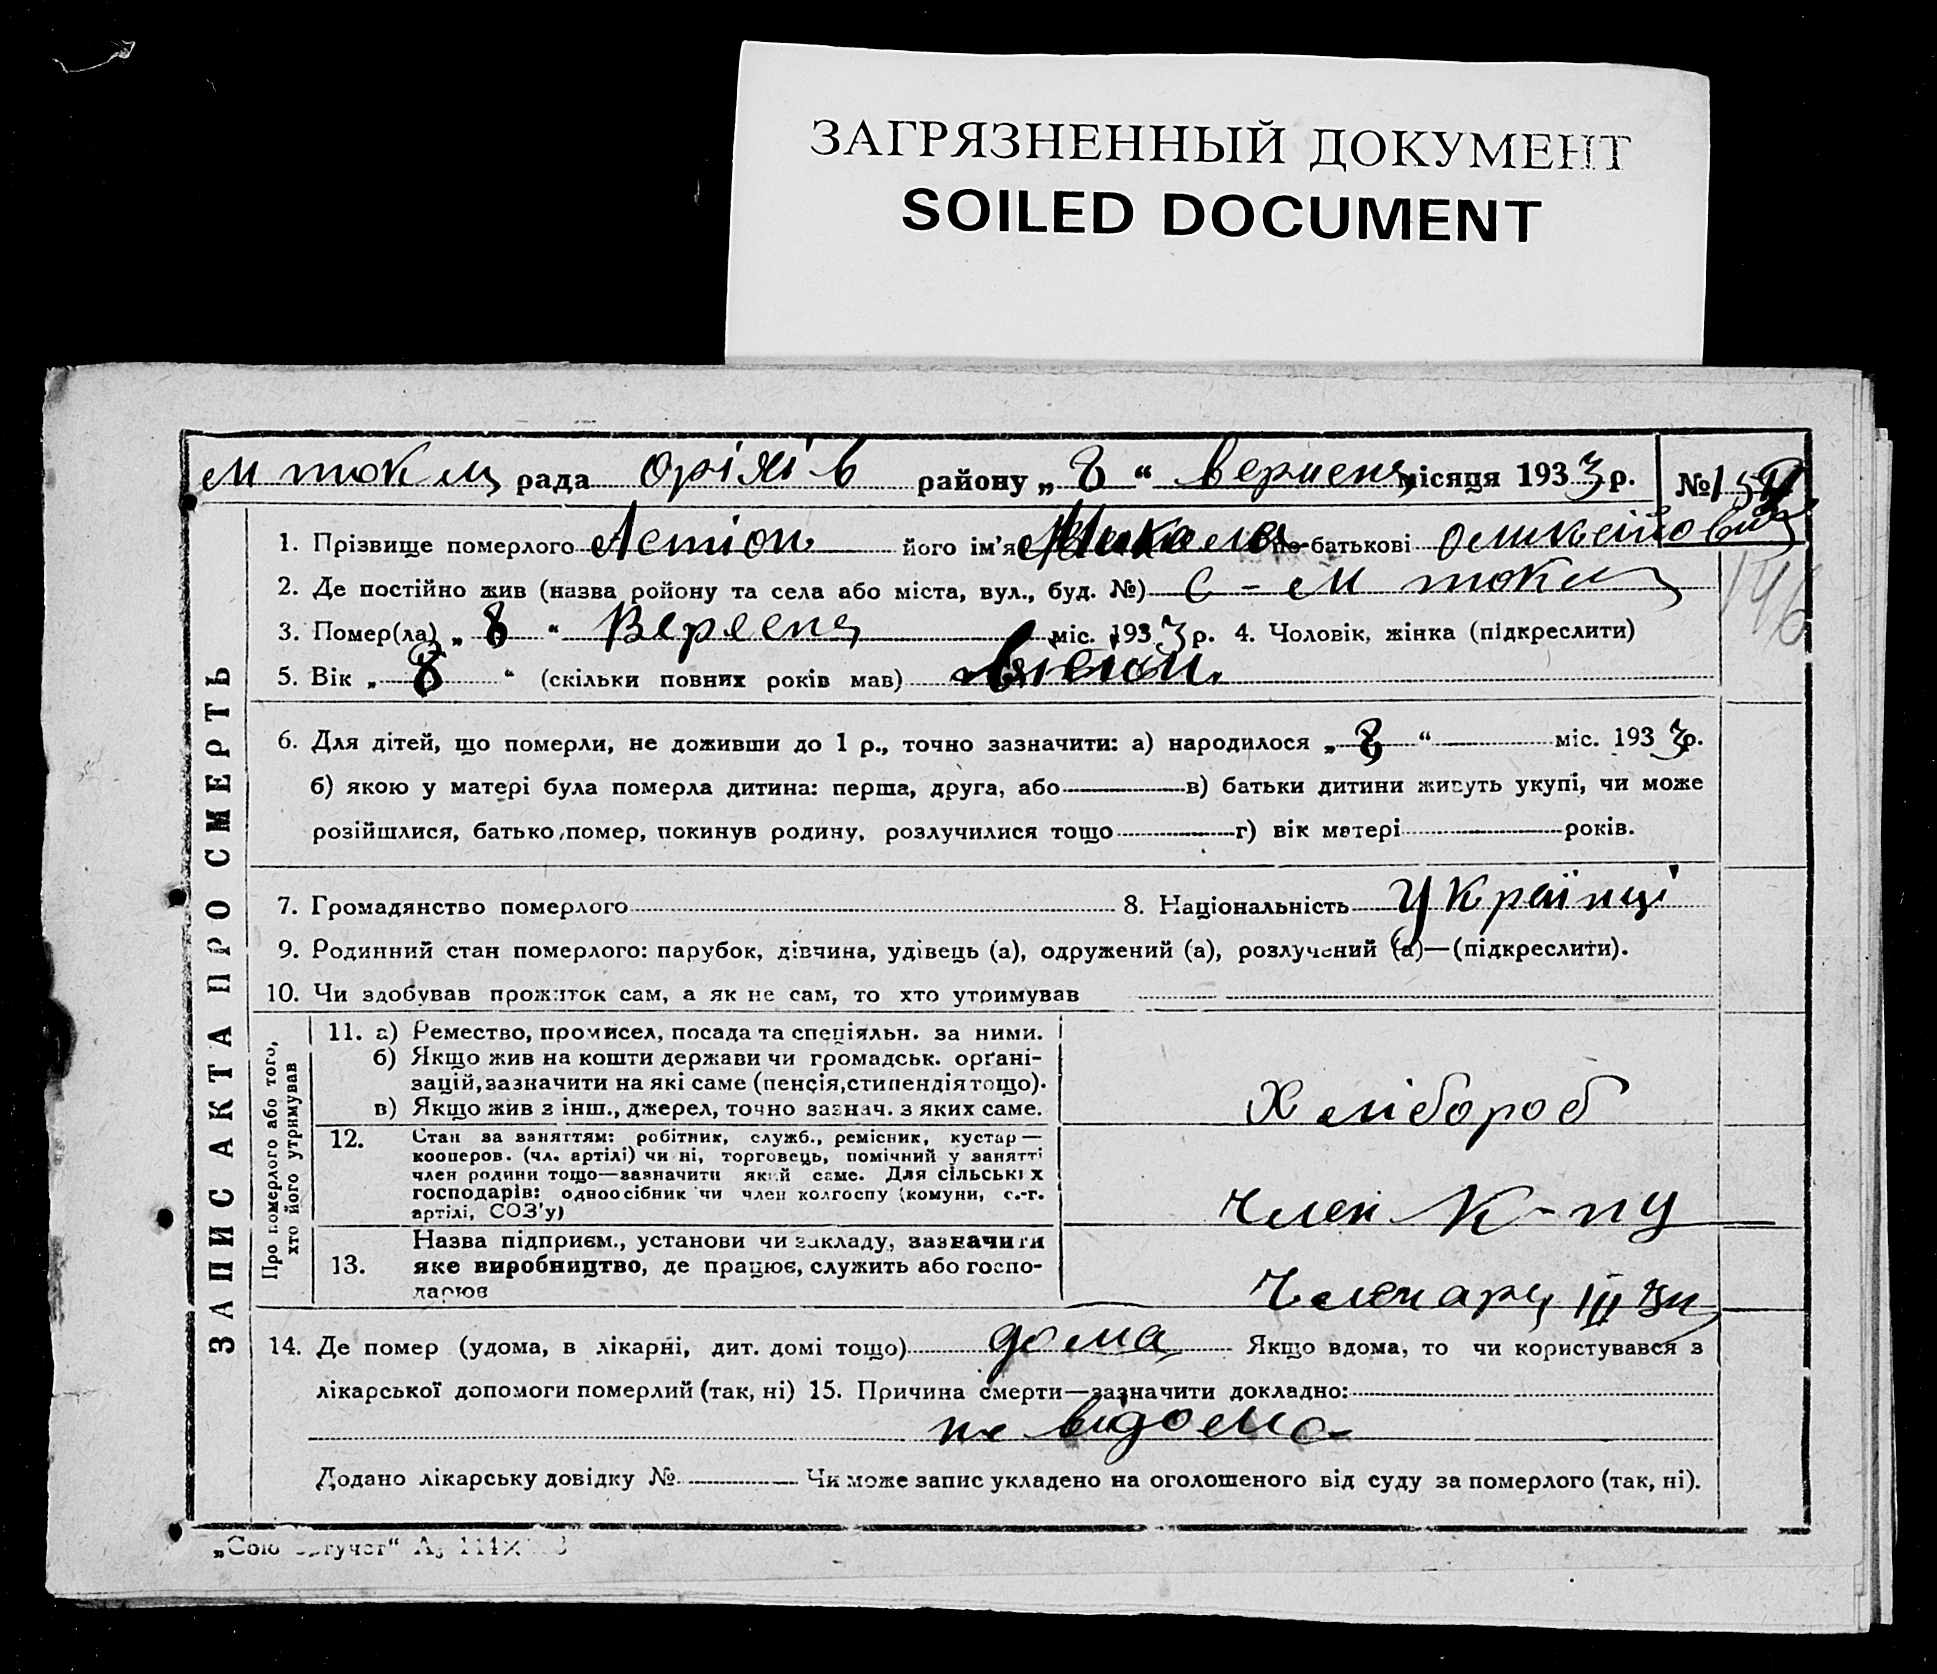 ЗАГРЯЗНЕННЫЙ ДОКУМЕНТ
SOILED DOCUMENT
М токм рада оріхів району „ 8 “ вересня місяця 1933 р. №
1. Прізвище померлого його ім'я Микола по-батькові
2. Де постійно жив (назва ройону та села або міста, вул., буд. №) с - М токм
3. Помер(ла) „ 8 “ Вересня міс. 1933 р. 4. Чоловік, жінка (підкреслити)
5. Вік „ 8 “ (скільки повних років мав) вісім.
6. Для дітей, що померли, не доживши до 1 р., точно зазначити: а) народилося „ 8 “ міс. 1933 р.
б) якою у матері була померла дитина: перша, друга, або в) батьки дитини живуть укупі, чи може
розійшлися, батько помер, покинув родину, розлучилися тощо г) вік матері років.
7. Громадянство померлого 8. Національність Українці
9. Родинний стан померлого: парубок, дівчина, удівець (а), одружений (а), розлучений (а)—(підкреслити).
10. Чи здобував прожиток сам, а як не сам, то хто утримував
ЗАПИС АКТА ПРО СМЕРТЬ
Про померлого або того,
хто його утримував
11. а) Ремество, промисел, посада та спеціяльн. за ними.
б) Якщо жив на кошти держави чи громадськ. орґані-
зацій, зазначити на які саме (пенсія, стипендія тощо).
в) Якщо жив з інш., джерел, точно зазнач. з яких саме.
Хлібороб
12. Стан за заняттям: робітник, служб., ремісник, кустар—
кооперов. (чл. артілі) чи ні, торговець, помічний у занятті
член родини тощо—зазначити який саме. Для сільських
господарів: одноосібник чи член колгоспу (комуни, с.-г.
артілі, СОЗ'у)
Член К-пу
13. Назва підприєм., установи чи закладу, зазначити
яке виробництво, де працює, служить або госпо-
дарює
14. Де помер (удома, в лікарні, дит. домі тощо) дома Якщо вдома, то чи користувався з
лікарської допомоги померлий (так, ні) 15. Причина смерти—зазначити докладно:
не відомо
Додано лікарську довідку № Чи може запис укладено на оголошеного від суду за померлого (так, ні).